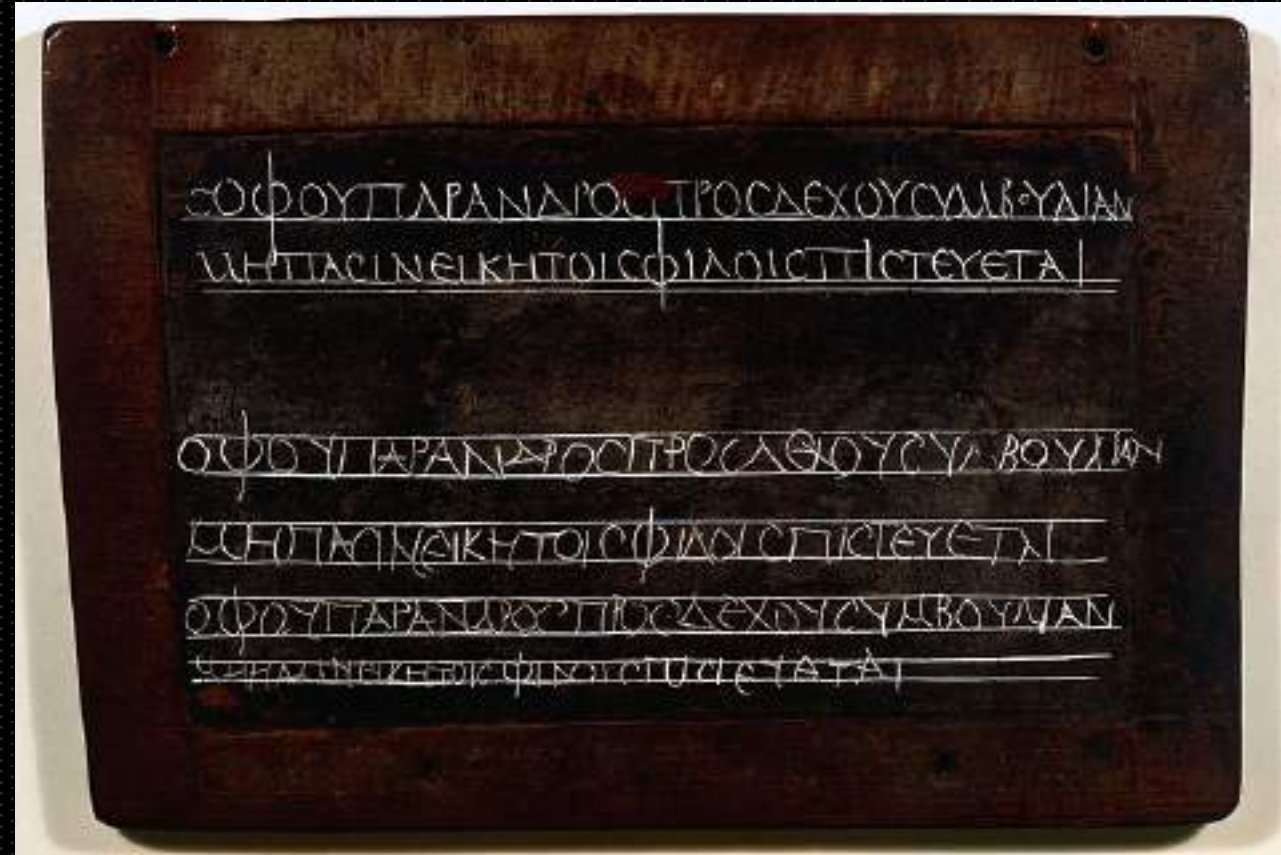 ϹΟΦΟΥΠΑΡΑΝΔΡΟϹΠΡΟϹΔΕΧΟΥϹΥΜΒΟΥΛΙΑΝ
ΜΗΠΑϹΙΝΕΙΚΗΤΟΙϹΦΙΛΟΙϹΠΙϹΤΕΥΕΤΑΙ
ΟΦΟΥΠΑΡΑΝΔΡΟϹΠΡΟϹΔΘΙΟΥϹΥΜΒΟΥΛΙΑΝ
ΜΗΠΑϹΙΝΕΙΚΗΤΟΙϹΦΙΛΟΙϹΠΙϹΤΕΥΕΤΑΙ
ΟΦΟΥΠΑΡΑΝΔΡΟϹΠΡΟϹΔΕΧΟΥϹΥΜΒΟΥΛΙΑΝ